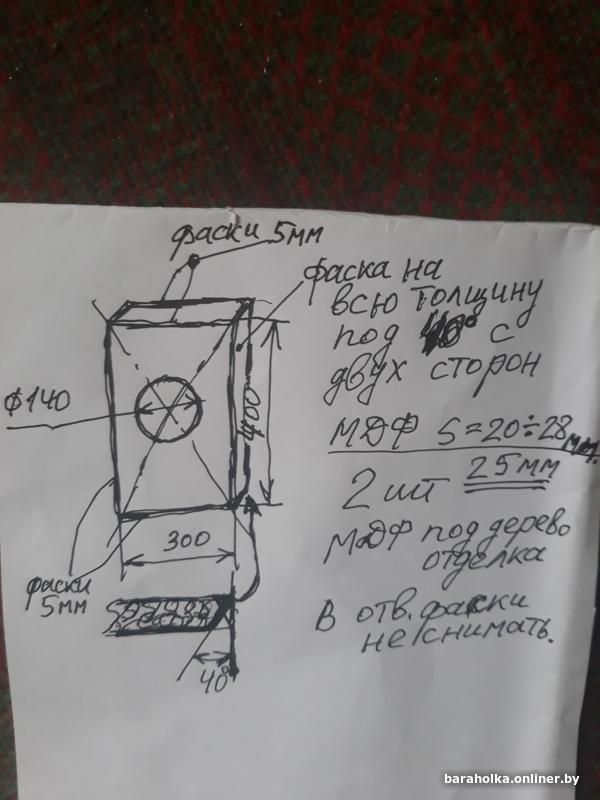 фаски 5мм
фаска на
всю толщину
под 40° с
двух сторон
ф140
400
МДФ S=20÷28мм.
25мм
2 шт
300
МДФ под дерево
отделка
фаски
5мм
В отв. фаски
не снимать.
40°
baraholka.onliner.by